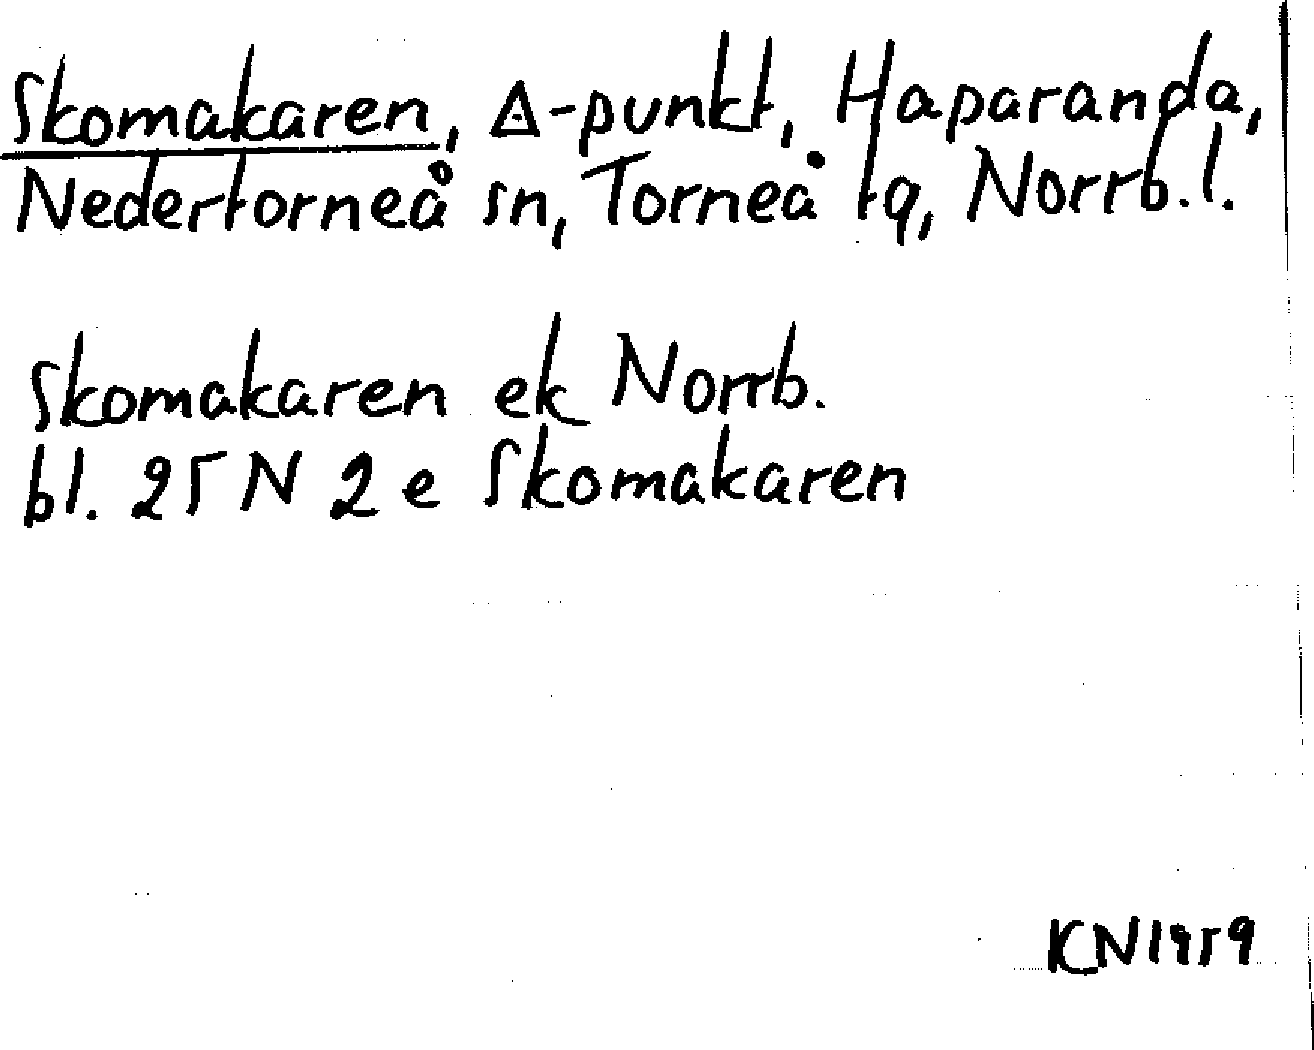 Skomakaren, ∆-punkt, Haparanda,
Nedertorneå sn, Torneå tg, Norrb. l.
Skomakaren ek Norrb.
bl. 25 N 2 e Skomakaren
KN 1959